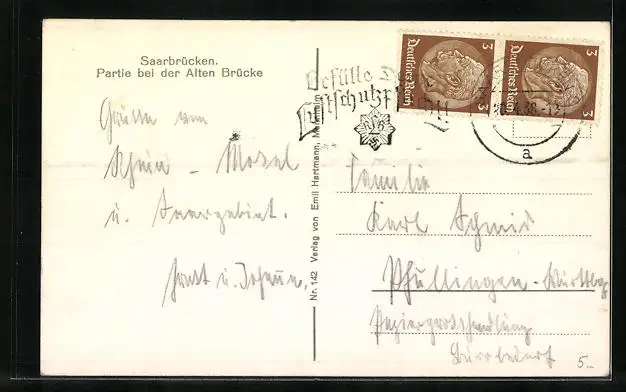 Saarbrücken.
Partie bei der Alten Brücke
Grüße vom
Rhein - Mosel
u. Saargebiet.
Ernst u. Johanna.
Nr. 142 Verlag von Emil Hartmann, Mannheim
Erfülle
Luftschutzpflicht!
3 Deutsches Reich 3
3 Deutsches Reich 3
a
Familie
Karl Schmid
Pfullingen - Württbg
Papiergroßhandlung
Bürobedarf
5.-